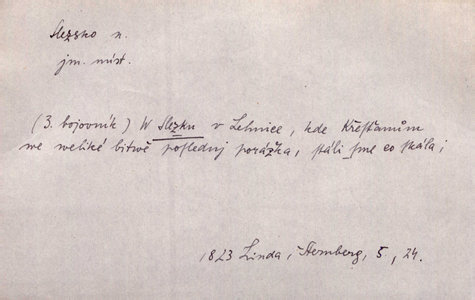 Slezsko n.
jm. míst.
(3. bojovník) W Slezku v Lehnice, kde Křesťanům
we weliké bitwě posledny porážka, stáli sme co skála;
1823 Linda, Šternberg, 5, 24.